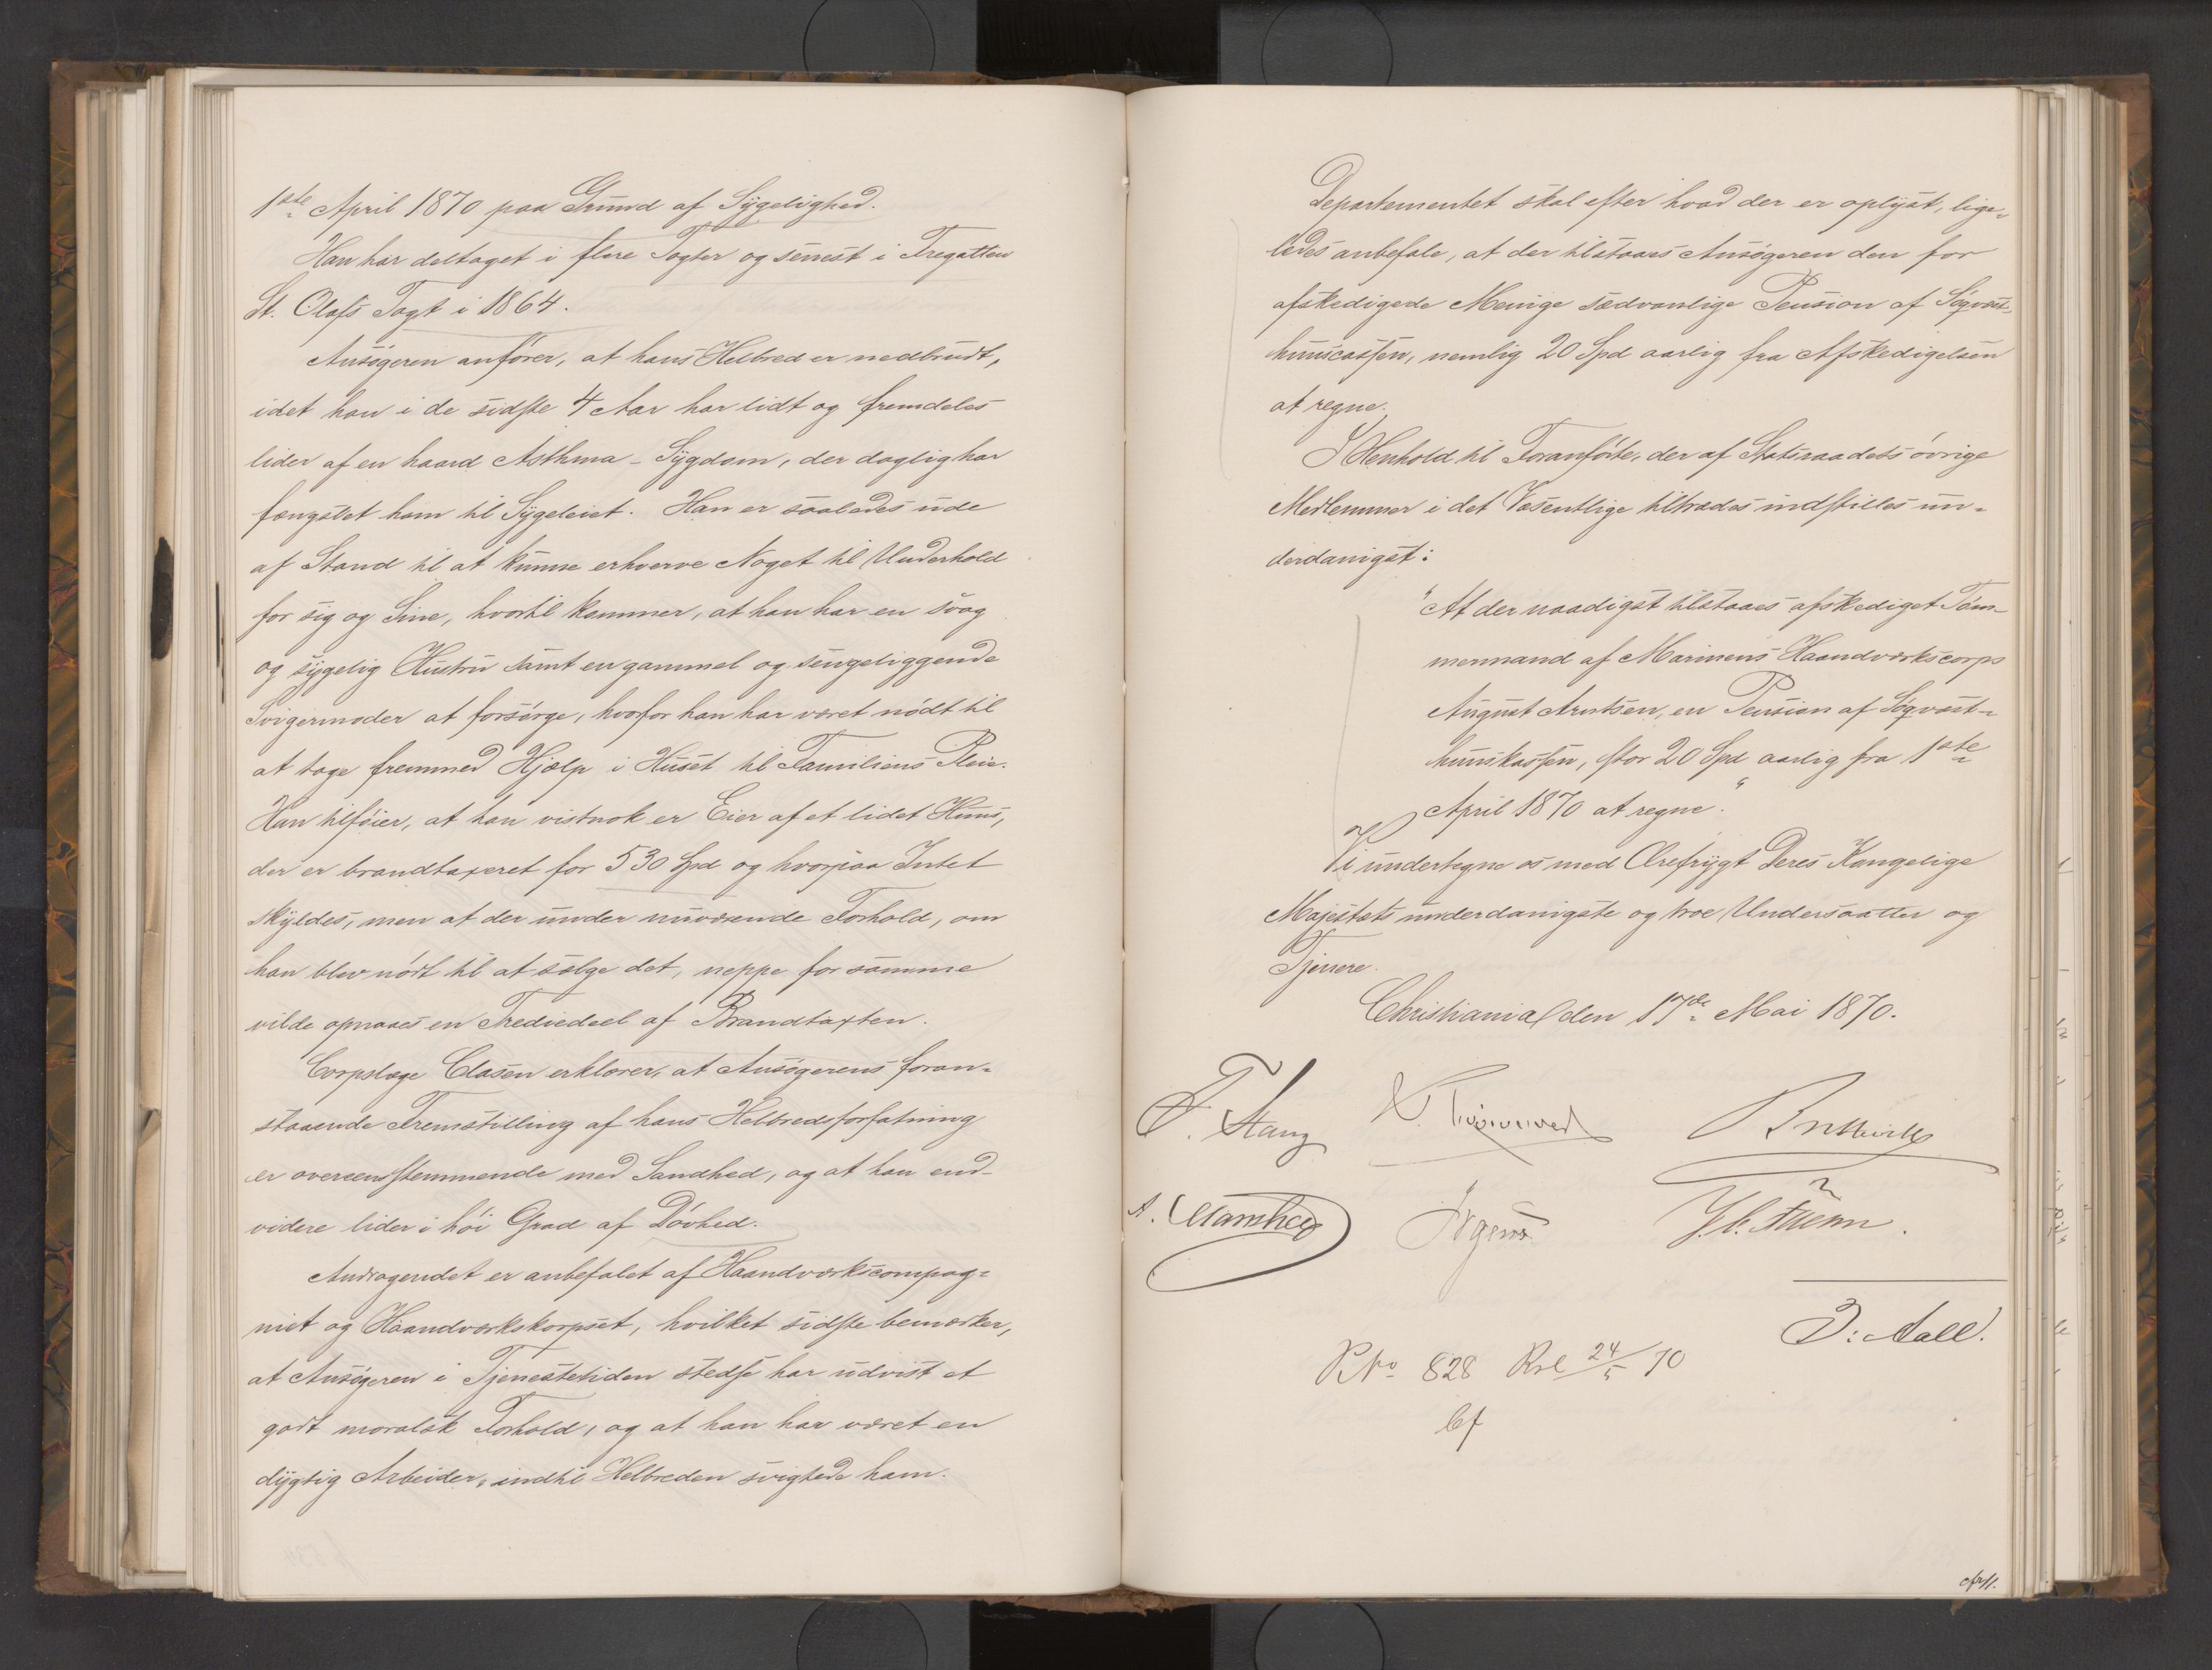 1ste April 1870 paa Grund af Sygelighed.
Han har deltaget i flere Togter og senest i Fregatten
St. Olafs Togt i 1864.
Ansøgeren anfører, at hans Helbred er nedbrudt,
idet han i de sidste 4 Aar har lidt og fremdeles
lider af en haard Asthma-Sygdom, der daglig har
fængslet ham til Sygeleiet. Han er saaledes ude
af Stand til at kunne erhverve Noget til Underhold
for sig og Sine, hvortil kommer, at han har en svag
og sygelig Hustru samt en gammel og sengeliggende
Svigermoder at forsørge, hvorfor han har været nødt til
at tage fremmed Hjælp i Huset til Familiens Pleie.
Han tilføier, at han vistnok er Eier af et lidet Huus,
der er brandtaxeret for 530 Spd og hvorpaa Intet
skyldes, men at der under nuværende Forhold, om
han blev nødt til at sælge det, neppe for samme
vilde opnaaes en Trediedeel af Brandtaxten.
Corpslæge Clasen erklærer, at Ansøgerens foran-
staaende Fremstilling af hans Helbredsforfatning
er overeensstemmende med Sandhed, og at han end-
videre lider i høi Grad af Døvhed.
Andragendet er anbefalet af Haandværkscompag-
niet og Haandværkskorpset, hvilket sidste bemærker,
at Ansøgeren i Tjenestetiden stedse har udvist et
godt moralsk Forhold, og at han har været en
dygtig Arbeider, indtil Helbreden svigtede ham.
Departementet skal efter hvad der er oplyst, lige-
ledes anbefale, at der tilstaaes Ansøgeren den for
afskedigede Menige sædvanlige Pension af Søqvæst-
huuscassen, nemlig 20 Spd aarlig fra Afskedigelsen
at regne.
I Henhold til Foranførte, der af Statsraadets øvrige
Medlemmer i det Væsentlige tiltrædes indstilles un-
derdanigst:
"At der naadigst tilstaaes afskediget Tøm-
mermand af Marinens Haandværkscorps
August Arntsen, en Pension af Søqvæst-
huuskassen, stor 20 Spd aarlig fra 1ste
April 1870 at regne."
Vi undertegne os med Ærefrygt Deres Kongelige
Majestæts underdanigste og troe Undersaatter og
Tjenere.
Christiania den 17de Mai 1870.
F. Stang
A.
Irgens
D: Aall.
R No 828 Rsl 24/5 70